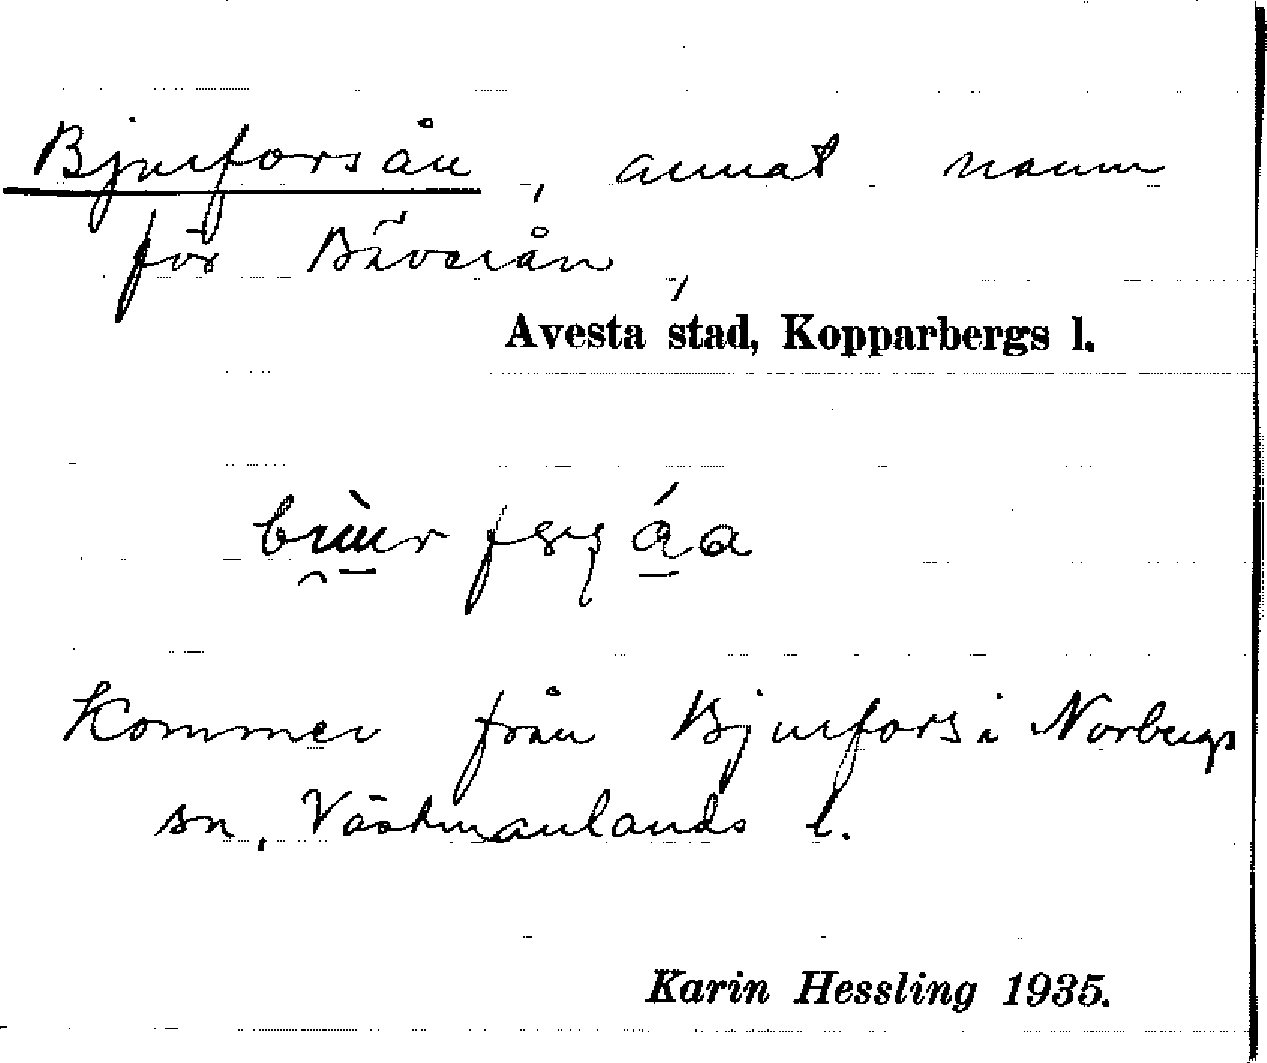 Bjurforsån, annat namn
för Bäverån,
Avesta stad, Kopparbergs l.
Kommer från Bjurfors i Norbergs
sn, Västmanlands l.
Karin Hessling 1935.